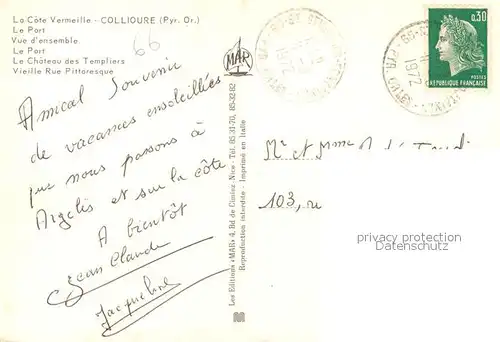 La Côte Vermeille - COLLIOURE (Pyr. Or.)
Le Port
Vue d'ensemble
Le Port
Le Château des Templiers
Vieille Rue Pittoresque
66
MAR
Amical Souvenir
de vacances ensoleillées
que nous passons à
Argelès et sur la côte
A bientôt
Jean Claude
Jacqueline
Les Editions «MAR» 4, Bd de Cimiez - Nice - Tél. 85-31-70, 85-32-82
Reproduction interdite - Imprimé en Italie
1972
0,30
REPUBLIQUE FRANÇAISE
Mr et Mme
103, ru
privacy protection
Datenschutz